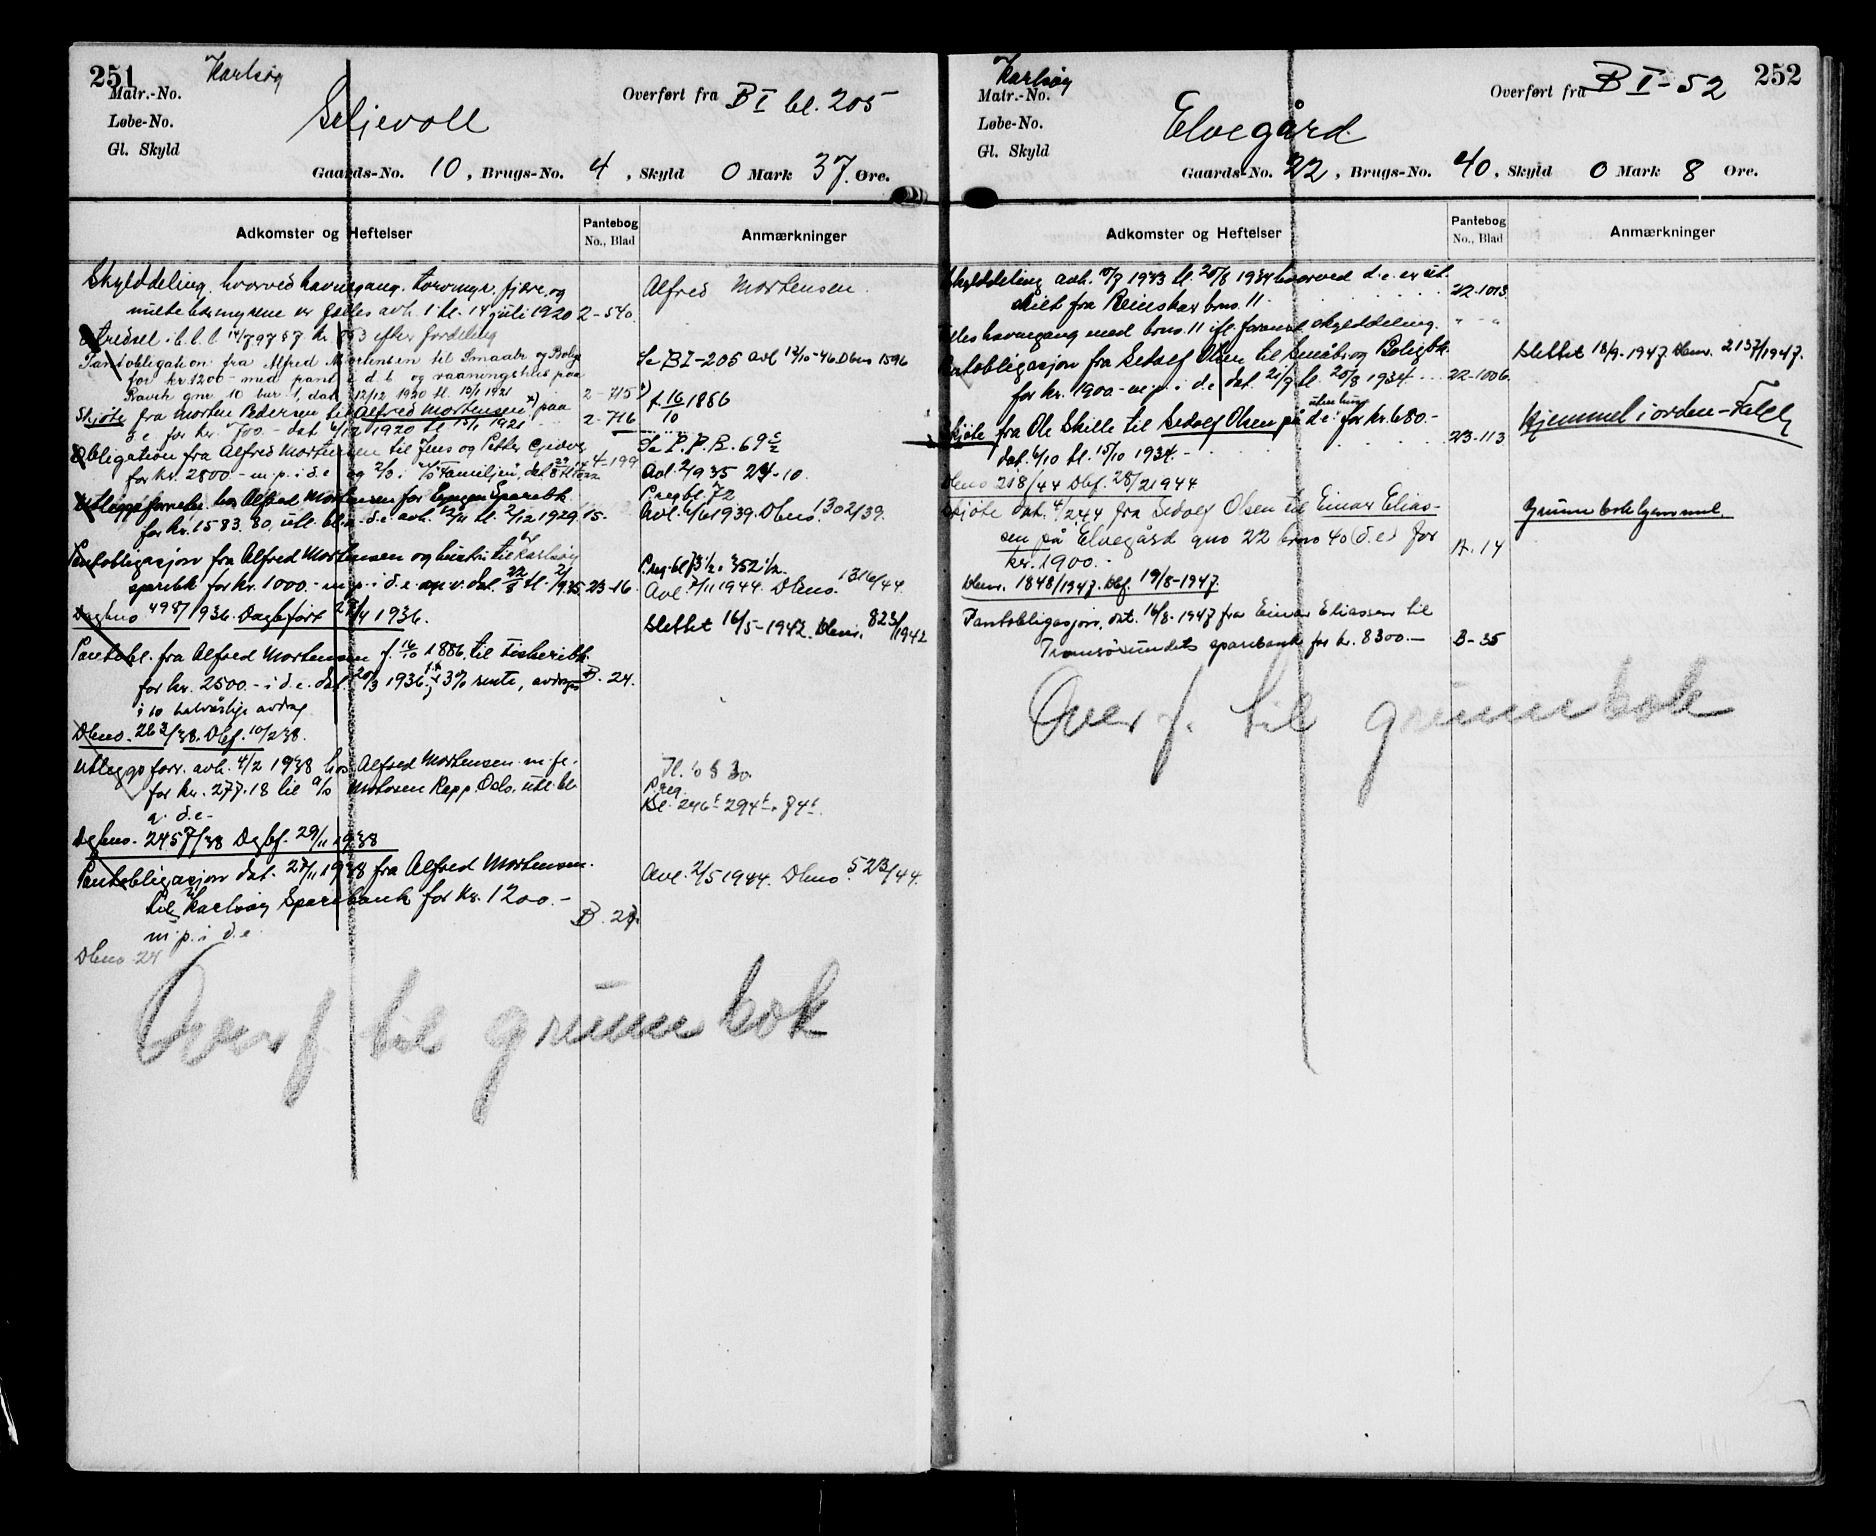 251
Karlsøy
Matr.-No.
Løbe-No.
Gl. Skyld
Seljevoll
Overført fra B I bl. 205
Gaards-No. 10, Brugs-No. 4, Skyld 0 Mark 37 Øre.
Adkomster og Heftelser
Pantebog
No., Blad
Anmærkninger
Skylddeling, hvorved havnegang, torvmyr, fjære og
multebærmyrene er fælles avh. 1 tl. 14 juli 1920 2-540.
Alfred Mortensen.
efter fordeling
Pantobligation fra Alfred Mortensen til Smaabr og Bolig
for kr 1200 - med pant i d. b og vaaningshus paa
gno 10 bnr 1, dat 12/12 1920 tl. 15/1 1921 2-715
Se B I-205 avl 12/10-46 Dbno 1596
Skjøte fra Morten Pedersen til Alfred Mortensen x) paa
d e for kr. 700.- dat 6/12 1920 tl 15/1 1921 2-716
x) f. 16/10 1886
Obligation fra Alfred Mortensen til Jens og Petter Gjæver
for kr. 2800.- m. p. i d. e og 2/3 i "Familjen", dat 4-199
Se P. P. B. 69
Avl. 2/9 35 24-10.
Utlægsforretn. hos Alfred Mortensen for Lyngen Sparebk.
for kr. 1583.80, utl. bl. a. d. e avh. 12/11 tl. 2/12 1929. 15-
P.reg bl. 72
Avl. 1939. Dbno. 1302/39
Pantobligasjon fra Alfred Mortensen og hustru til Karlsøy
sparebk for kr. 1000.- m. p. i d. e dat. 22/8 tl. 2/9 35 23-16.
Avl. 7/11 1944. Dbno. 1316/44
Dagbno 498/1936. Dagbført 1936.
Pantobl. fra Alfred Mortensen f. 16/10 1886, til Fiskeribk.
for kr. 2500.- i d. e. dat. 20/3 1936, 3% rente, avdrages B. 24.
i 10 halvårlige avdrag
Slettet 16/5-1942. Dbnr. 823/1942
Dbno. 263/38. Dbf. 10/2 38.
Utleggsforr. avh. 4/2 1938 hos Alfred Mortensen m. fl.
for kr. 277.18 til a/s Motoren Repp. Oslo. utl. bl.
a. d. e.
P.reg.
Bl. 246 294 74
Dagbno. 2457/38 Dagbf. 29/11 1938
Pantobligasjon dat. 27/11 1938 fra Alfred Mortensen
til Karlsøy Sparebank for kr. 1200.-
m. p. i d. e
B. 27.
Avl. 2/5 1944. Dbno. 523/44.
Dbno 24
Overf. til grunnbok
252
Karlsøy
Matr.-No.
Løbe-No.
Gl. Skyld
Elvegård
Overført fra B I-52
Gaards-No. 22, Brugs-No. 40, Skyld 0 Mark 8 Øre.
Adkomster og Heftelser
Pantebog
No., Blad
Anmærkninger
Skylddeling avh. 10/7 1933 tl. 20/8 1934 hvorved d. e. er ut-
skilt fra Reinskar bnr. 11 22-1013.
Felles havnegang med bnr. 11 ifl. foranst. skylddeling. " - "
Pantobligasjon fra Sedolf Olsen til Småbr. og Boligbk.
for kr. 1900.- m. p. i d. e dat. 21/7 tl. 20/8 1934 22-1006.
Slettet 18/9-1947. Dbnr. 2137/1947.
Skjøte fra Ole Skille til Sedolf Olsen på d. e. for kr. 680.-
dat. 6/10 tl. 15/10 1934.- 23-113
Hjemmel i orden - Falch
Dbno 218/44 Dbf. 28/2 1944
Skjøte dat. 4/2 44 fra Sedolf Olsen til Einar Elias-
sen på Elvegård gno 22 bno 40 (d. e.) for
kr. 1900.-
A. 14
Grunnbokhjemmel.
Dbnr. 1848/1947. Dbf. 19/8-1947.
Pantobligasjon, dat. 16/8-1947 fra Einar Eliassen til
Tromsøsundets sparebank for kr. 8300.- B-35
Overf. til grunnbok